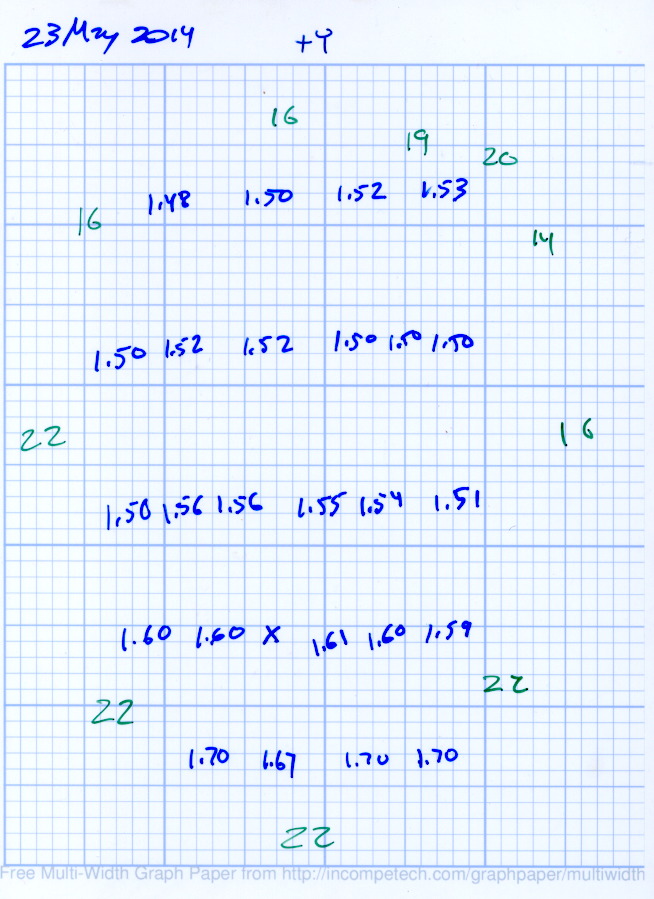 23 May 2014 +Y
16
19
20
1.48 1.50 1.52 1.53
16
14
1.50 1.52 1.52 1.50 1.50 1.50
22
16
1.50 1.56 1.56 1.55 1.54 1.51
1.60 1.60 X 1.61 1.60 1.59
22
22
1.70 1.67 1.70 1.70
22
Free Multi-Width Graph Paper from http://incompetech.com/graphpaper/multiwidth